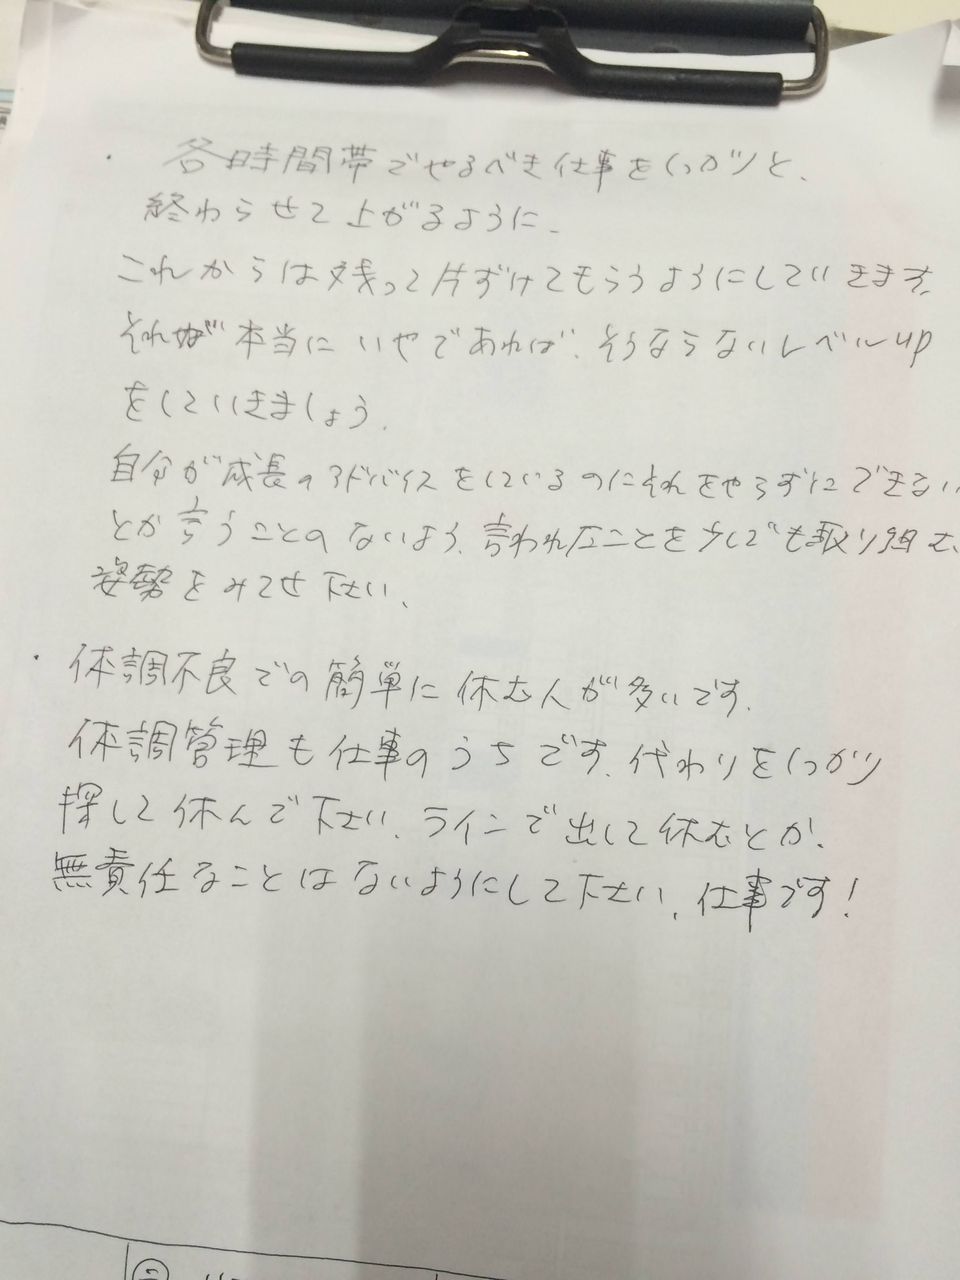 ・ 各時間帯でやるべき仕事をしっかりと、
終わらせて上がるように、
これからは残って片ずけてもらうようにしていきます。
それが本当にいやであれば、そうならないレベルup
をしていきましょう。
自分が成長のアドバイスをしているのにそれをやらずにできない
とか言うことのないよう、言われたことを少しでも取り組む、
姿勢をみてせ下さい、
・体調不良での簡単に休む人が多いです。
体調管理も仕事のうちです、代わりをしっかり
探して休んで下さい、ラインで出して休むとか、
無責任なことはないようにして下さい、仕事です！
②